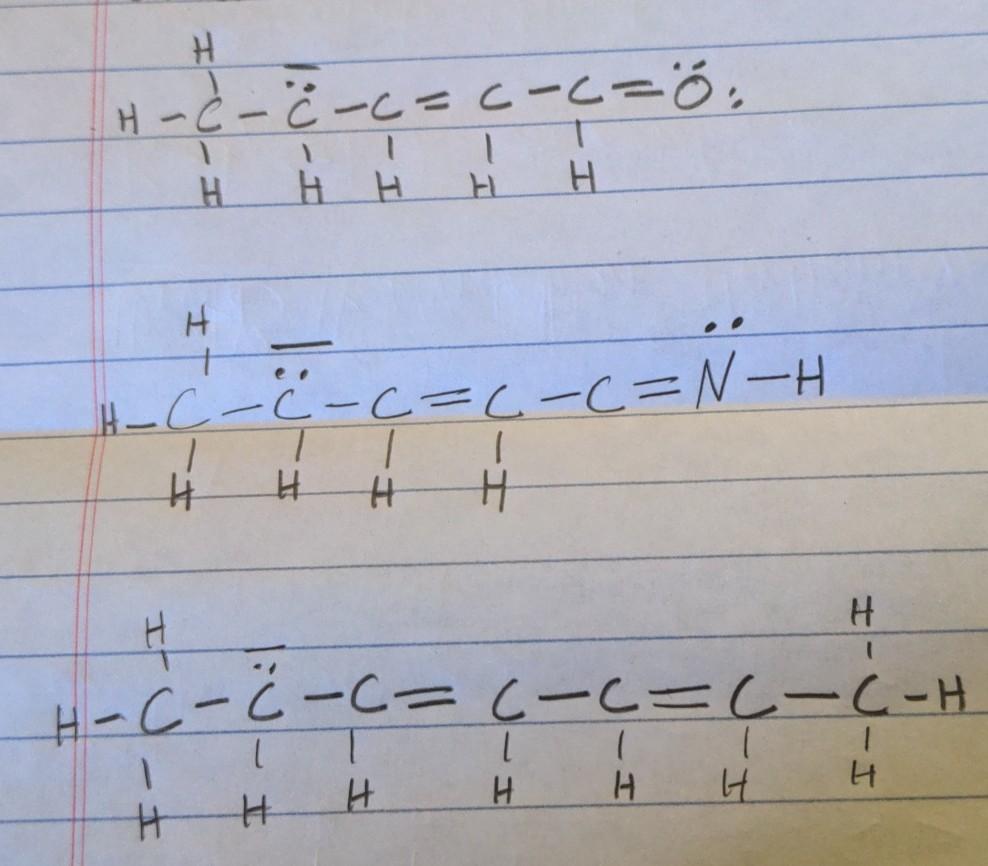 H
H - C - C̈ - C = C - C = Ö:
H H H H H
H
H - C - C̈ - C = C - C = N̈ - H
H H H H
H H
H - C - C̈ - C = C - C = C - C - H
H H H H H H H